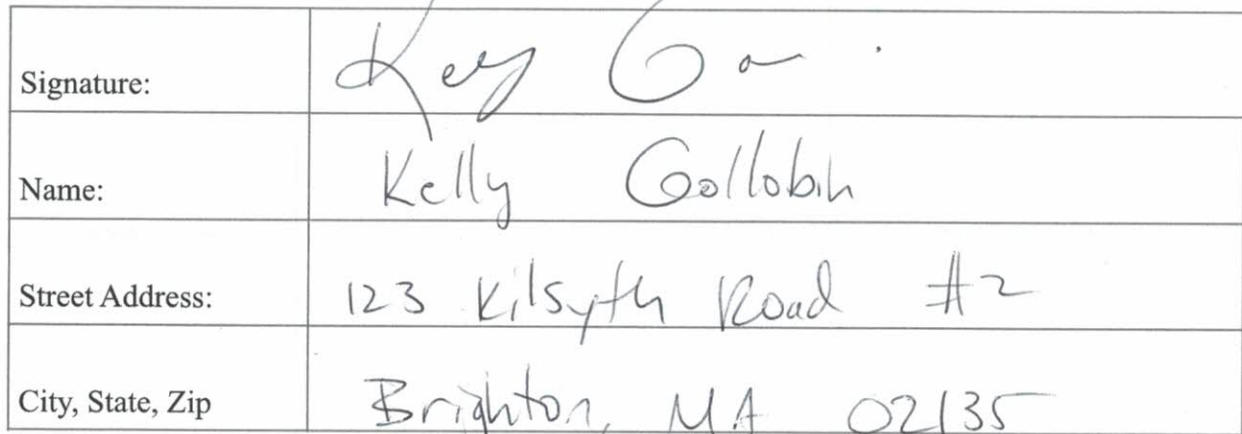 Signature:
Name: Kelly Gollobin
Street Address: 123 Kilsyth Road #2
City, State, Zip Brighton, MA 02135